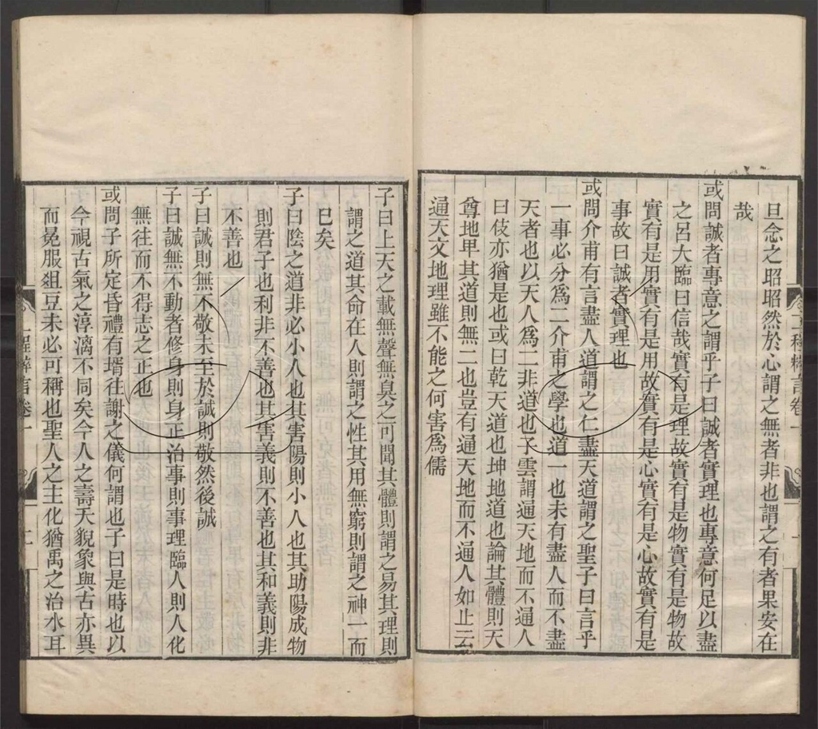 旦念之昭昭然於心謂之無者非也謂之有者果安在
哉
或問誠者專意之謂乎子曰誠者實理也專意何足以盡
之呂大臨曰信哉實有是理故實有是物實有是物故
實有是用實有是用故實有是心實有是心故實有是
事故曰誠者實理也
或問介甫有言盡人道謂之仁盡天道謂之聖子曰言乎
一事必分爲二介甫之學也道一也未有盡人而不盡
天者也以天人爲二非道也子雲謂通天地而不通人
曰伎亦猶是也或曰乾天道也坤地道也論其體則天
尊地卑其道則無二也豈有通天地而不通人如止云
通天文地理雖不能之何害爲儒
子曰上天之載無聲無臭之可聞其體則謂之易其理則
謂之道其命在人則謂之性其用無窮則謂之神一而
已矣
子曰陰之道非必小人也其害陽則小人也其助陽成物
則君子也利非不善也其害義則不善也其和義則非
不善也
子曰誠則無不敬未至於誠則敬然後誠
子曰誠無不動者修身則身正治事則事理臨人則人化
無往而不得志之正也
或問子所定昏禮有壻往謝之儀何謂也子曰是時也以
今視古氣之淳漓不同矣今人之壽夭貌象與古亦異
而冕服俎豆未必可稱也聖人之主化猶禹之治水耳
二程粹言卷一
二